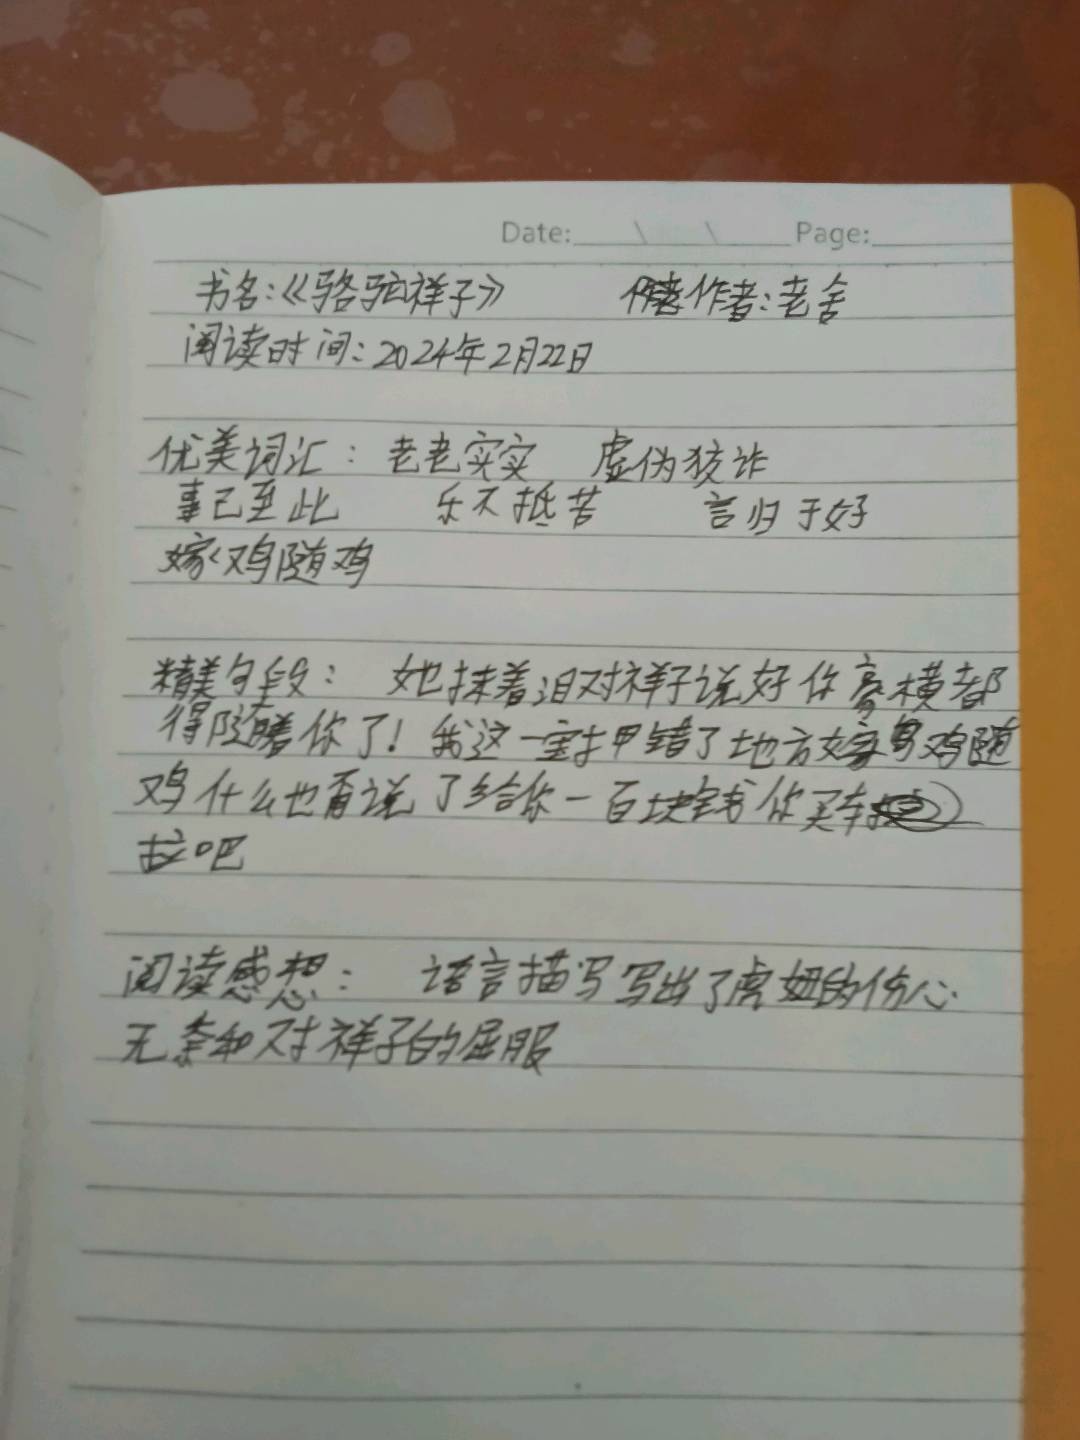 Date: \ \ Page:
书名:《骆驼祥子》 作者:老舍
阅读时间:2024年2月22日
优美词汇: 老老实实 虚伪狡诈
事已至此 乐不抵苦 言归于好
嫁鸡随鸡
精美句段: 她抹着泪对祥子说好你豪横都
得随着你了!我这一宝押错了地方嫁鸡随
鸡什么也甭说了给你一百块钱你买车
拉吧
阅读感想: 语言描写写出了虎妞的伤心
无奈和对祥子的屈服